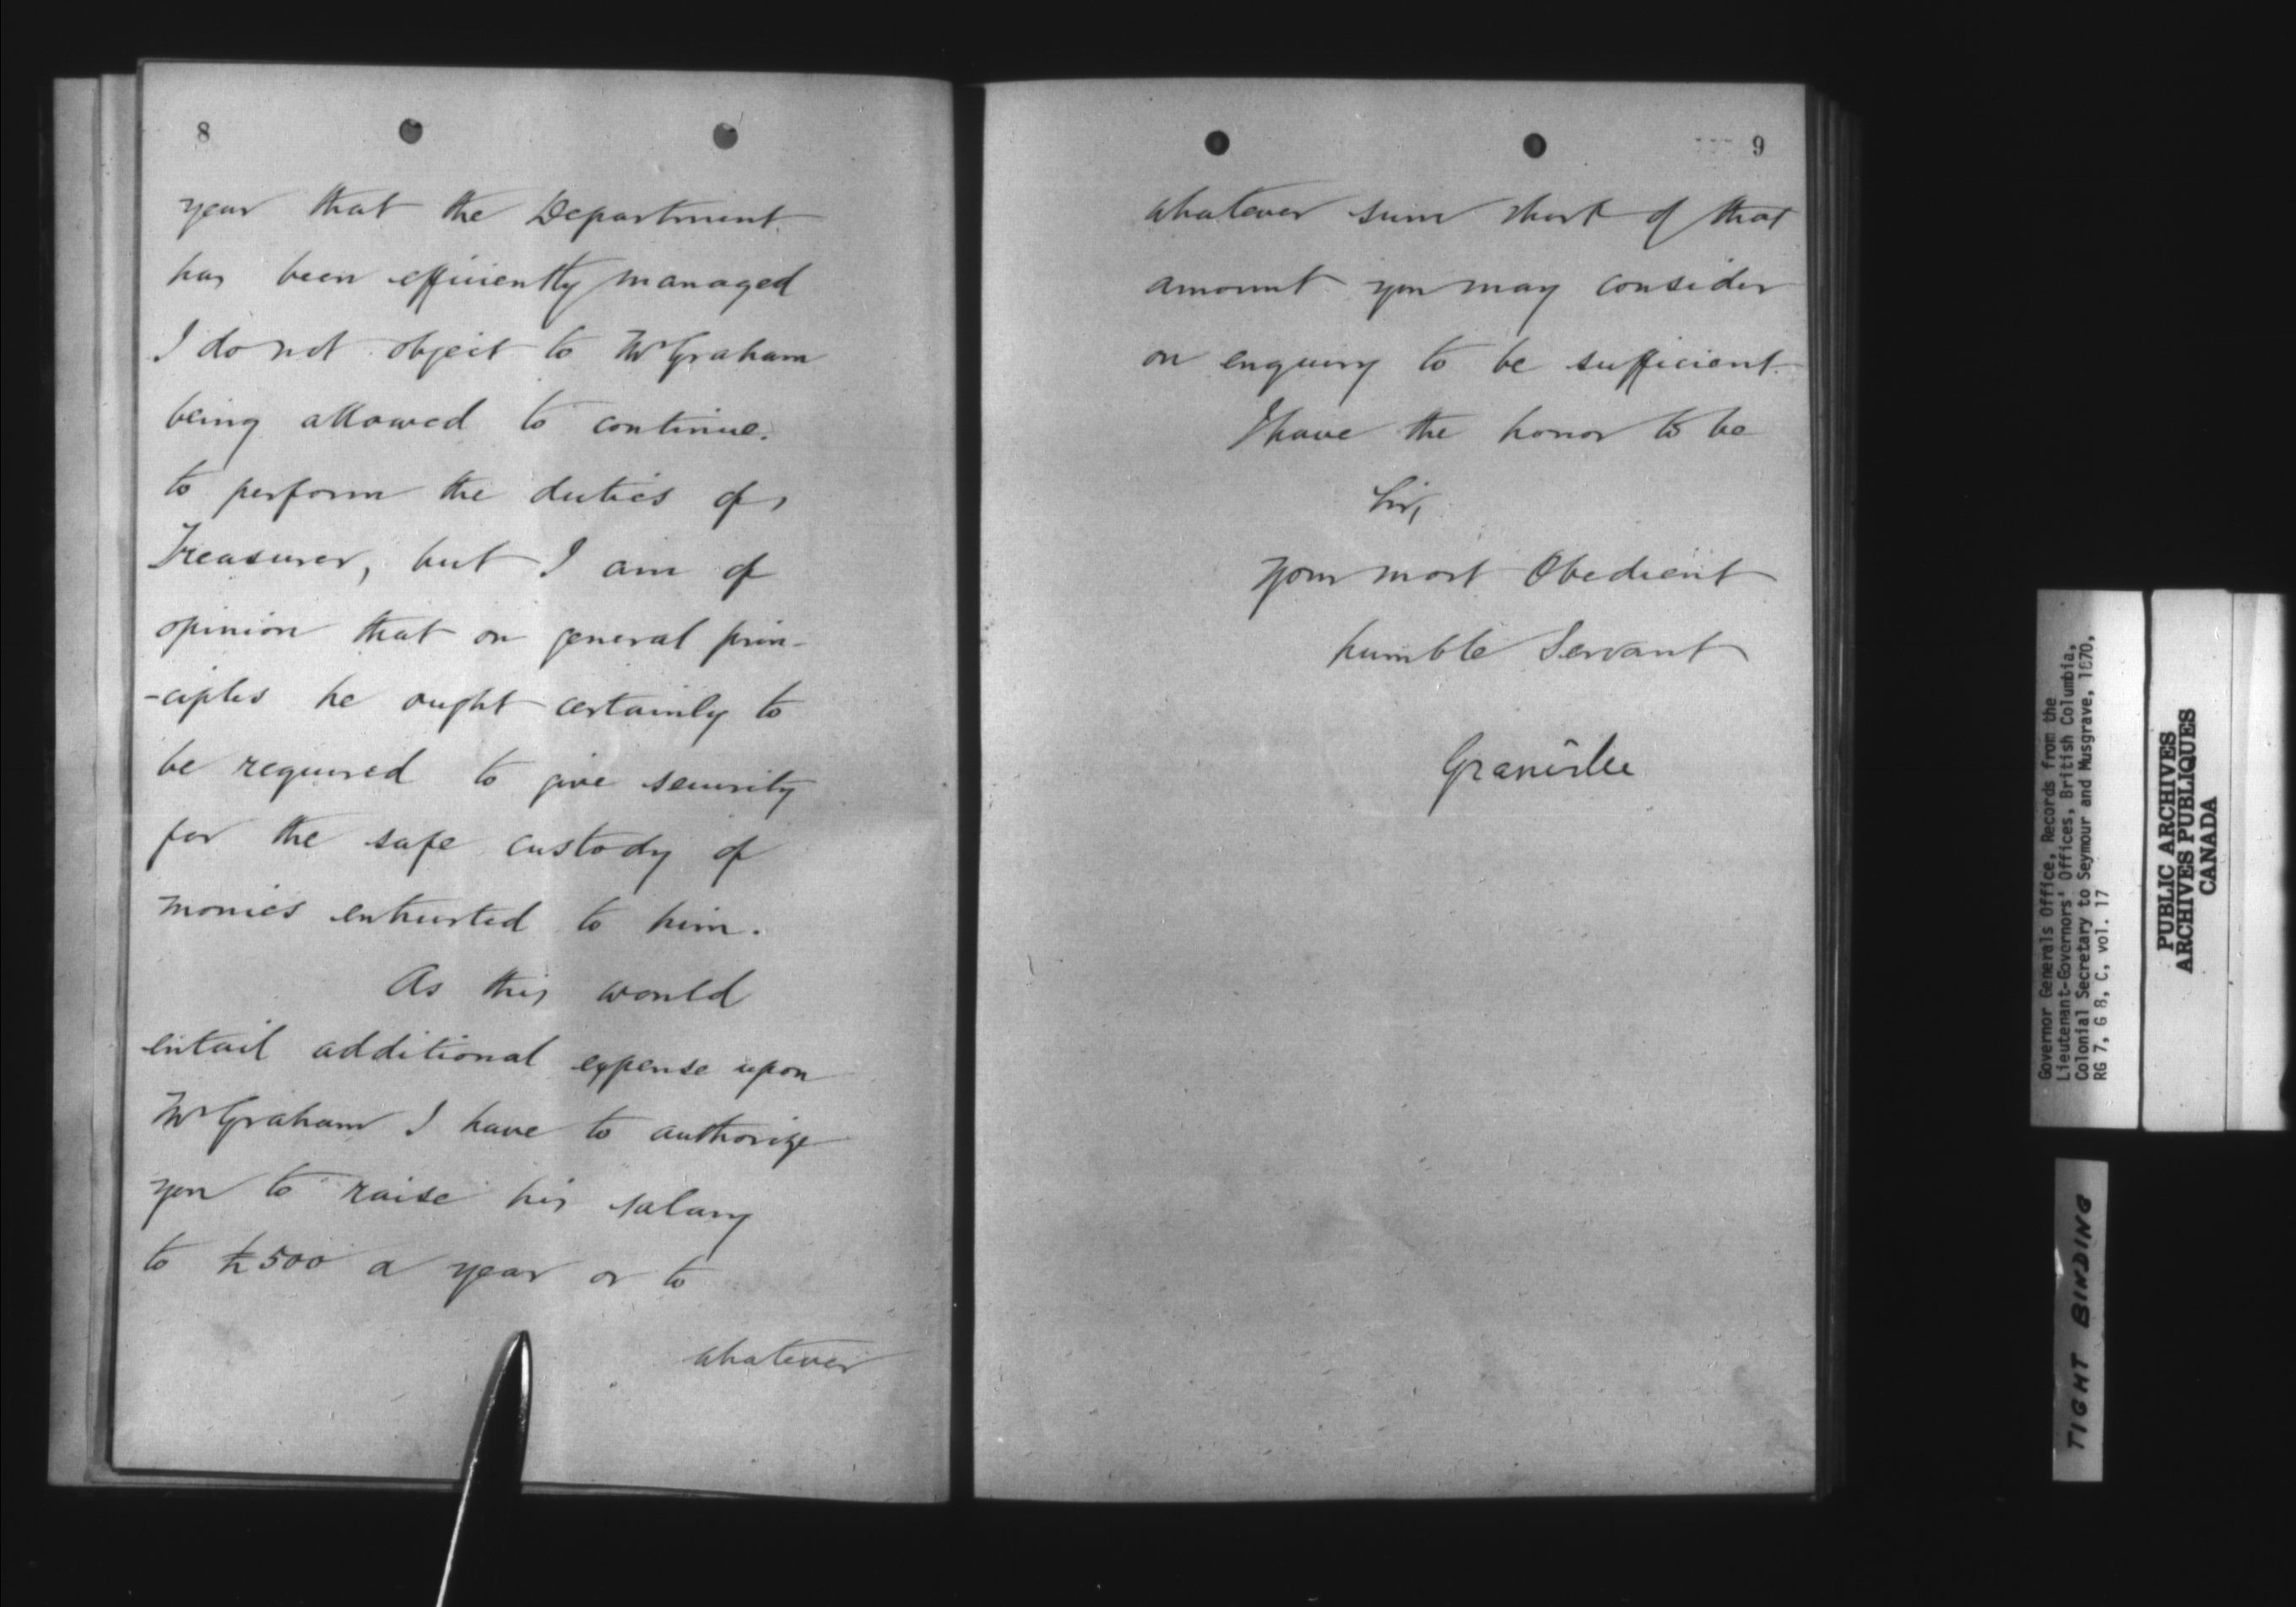 8
year that the Department
has been efficiently managed
I do not object to Mr Graham
being allowed to continue
to perform the duties of
Treasurer, but I am of
opinion that on general prin-
-ciples he ought certainly to
be required to give security
for the safe custody of
monies entrusted to him.
As this would
entail additional expense upon
Mr Graham I have to authorize
you to raise his salary
to £500 a year or to
whatever
9
whatever sum short of that
amount you may consider
on enquiry to be sufficient.
I have the honor to be
Sir,
Your most Obedient
humble Servant
Granville
Governor Generals Office, Records from the
Lieutenant-Governors' Offices, British Columbia,
Colonial Secretary to Seymour and Musgrave, 1870,
RG 7, G 8, C, vol. 17
PUBLIC ARCHIVES
ARCHIVES PUBLIQUES
CANADA
TIGHT BINDING